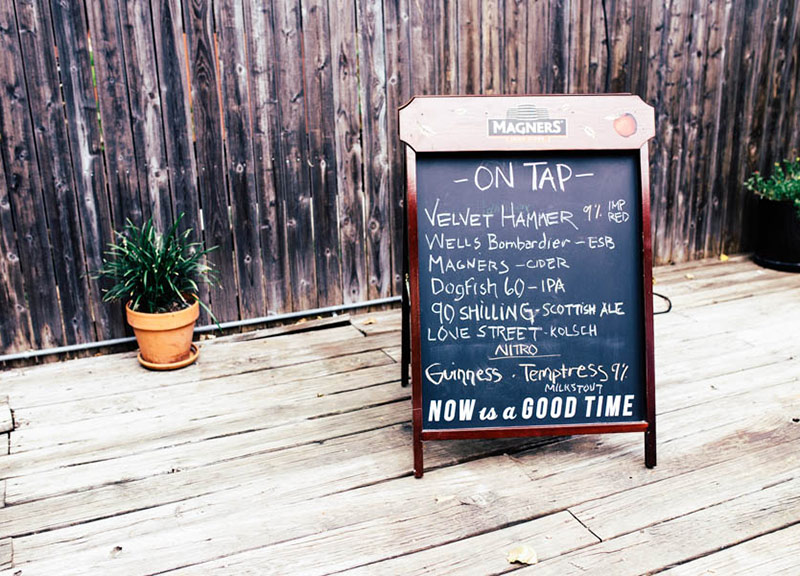 MAGNERS
- ON TAP -
VELVET HAMMER 9% IMP RED
WELLS Bombardier - ESB
MAGNERS - CIDER
Dogfish 60 - IPA
90 SHILLING - SCOTTISH ALE
LOVE STREET - KOLSCH
NITRO
Guinness . Temptress 9%
MILKSTOUT
NOW is a GOOD TIME